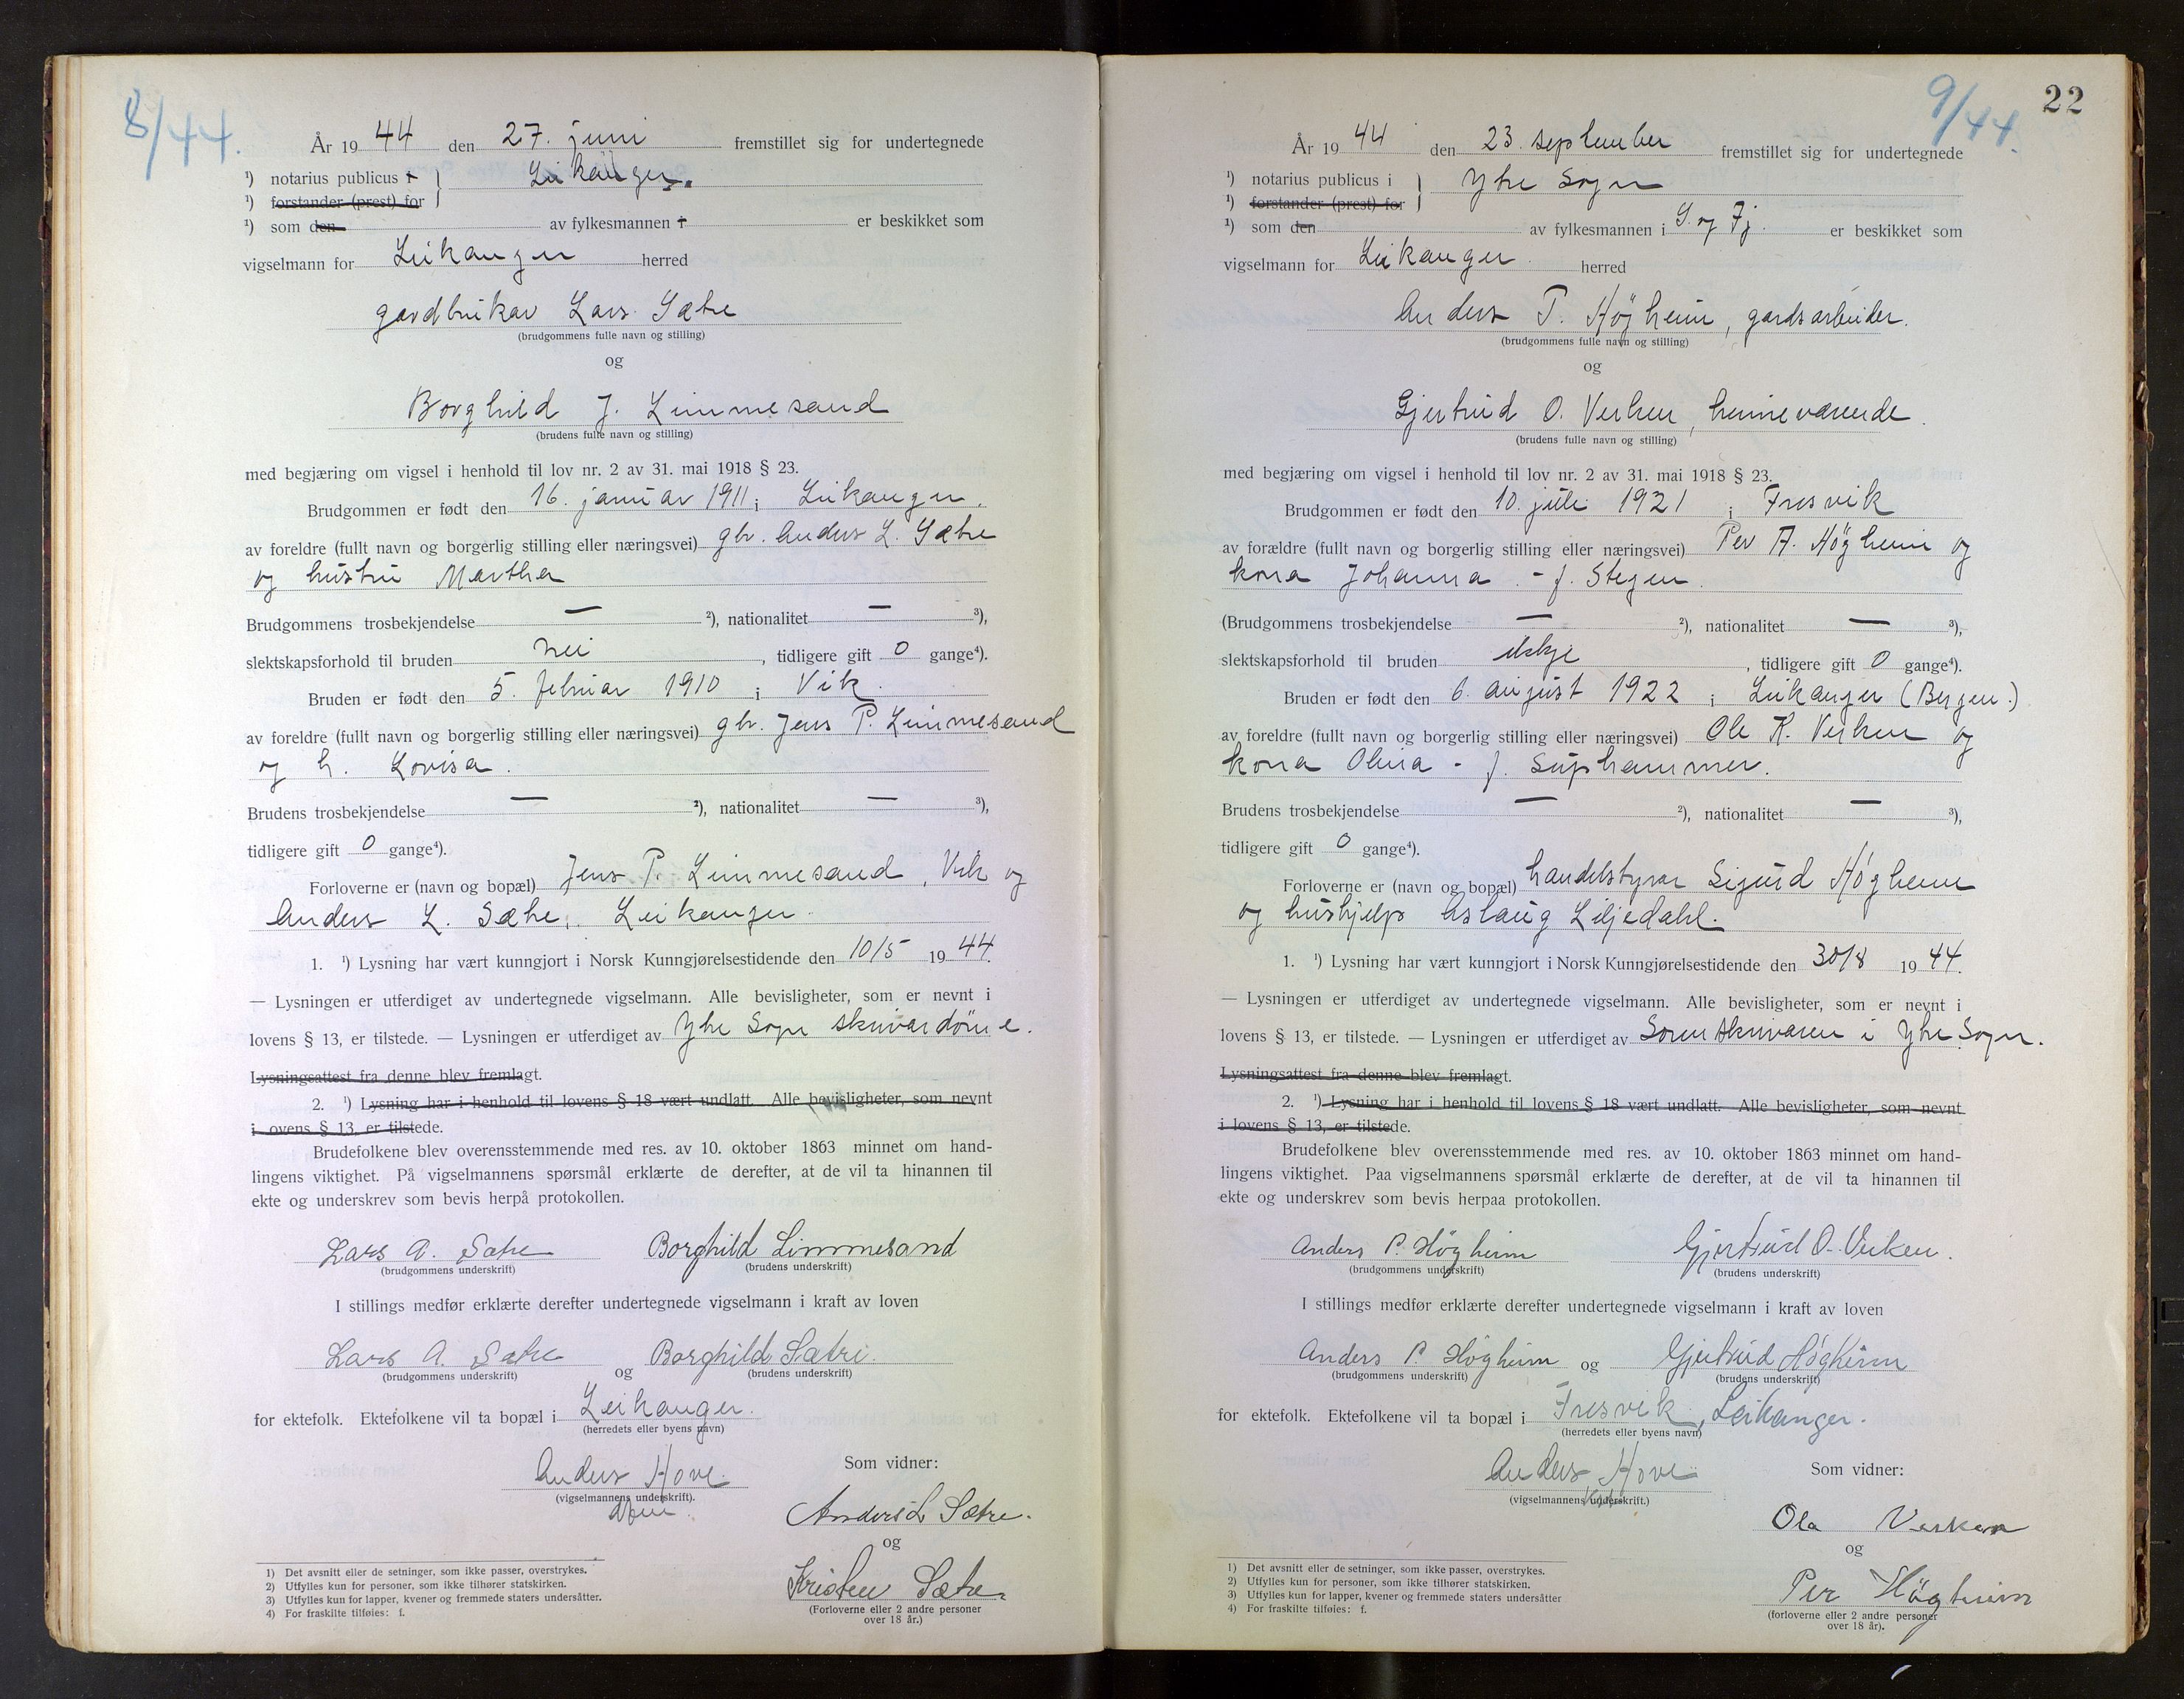 8/44.
År 19 44 den 27. juni fremstillet sig for undertegnede
¹) notarius publicus i } Leikanger.
¹) forstander (prest) for
¹) som den av fylkesmannen i er beskikket som
vigselmann for Leikanger herred
gardbrukar Lars Sætre
(brudgommens fulle navn og stilling)
og
Borghild J. Limmesand
(brudens fulle navn og stilling)
med begjæring om vigsel i henhold til lov nr. 2 av 31. mai 1918 § 23.
Brudgommen er født den 16. januar 1911 i Leikanger.
av foreldre (fullt navn og borgerlig stilling eller næringsvei) gbr. Anders L. Sætre
og hustru Martha
Brudgommens trosbekjendelse — ²), nationalitet — ³),
slektskapsforhold til bruden nei, tidligere gift 0 gange⁴).
Bruden er født den 5. februar 1910 i Vik.
av foreldre (fullt navn og borgerlig stilling eller næringsvei) gbr. Jens P. Limmesand
og h. Lovisa.
Brudens trosbekjendelse — ²), nationalitet — ³),
tidligere gift 0 gange⁴).
Forloverne er (navn og bopæl) Jens P. Limmesand, Vik og
Anders L. Sætre, Leikanger.
1. ¹) Lysning har vært kunngjort i Norsk Kunngjørelsestidende den 10/5 19 44.
— Lysningen er utferdiget av undertegnede vigselmann. Alle bevisligheter, som er nevnt i
lovens § 13, er tilstede. — Lysningen er utferdiget av Ytre Sogn skrivardöme.
Lysningsattest fra denne blev fremlagt.
2. ¹) Lysning har i henhold til lovens § 18 vært undlatt. Alle bevisligheter, som nevnt
i lovens § 13, er tilstede.
Brudefolkene blev overensstemmende med res. av 10. oktober 1863 minnet om hand-
lingens viktighet. På vigselmannens spørsmål erklærte de derefter, at de vil ta hinannen til
ekte og underskrev som bevis herpå protokollen.
Lars A. Sætre Borghild Limmesand
(brudgommens underskrift) (brudens underskrift)
I stillings medfør erklærte derefter undertegnede vigselmann i kraft av loven
Lars A. Sætre og Borghild Sætre.
(brudgommens underskrift) (brudens underskrift)
for ektefolk. Ektefolkene vil ta bopæl i Leikanger.
(herredets eller byens navn)
Anders Hove
(vigselmannens underskrift).
Som vidner:
Anders L Sætre.
og
Kristen Sætre
(Forloverne eller 2 andre personer
over 18 år.)
1) Det avsnitt eller de setninger, som ikke passer, overstrykes.
2) Utfylles kun for personer, som ikke tilhører statskirken.
3) Utfylles kun for lapper, kvener og fremmede staters undersåtter.
4) For fraskilte tilføies: f.
9/44. 22
År 19 44 den 23. september fremstillet sig for undertegnede
¹) notarius publicus i } Ytre Sogn
¹) forstander (prest) for
¹) som den av fylkesmannen i S. og Fj. er beskikket som
vigselmann for Leikanger herred
Anders P. Högheim, gardsarbeider.
(brudgommens fulle navn og stilling)
og
Gjertrud O. Verken, heimeværende.
(brudens fulle navn og stilling)
med begjæring om vigsel i henhold til lov nr. 2 av 31. mai 1918 § 23.
Brudgommen er født den 10. juli 1921 i Fresvik
av forældre (fullt navn og borgerlig stilling eller næringsvei) Per A. Högheim og
kona Johanna - f. Stegen.
(Brudgommens trosbekjendelse — ²), nationalitet — ³),
slektskapsforhold til bruden ikkje, tidligere gift 0 gange⁴).
Bruden er født den 6. august 1922 i Leikanger (Bergen.)
av foreldre (fullt navn og borgerlig stilling eller næringsvei) Ole K. Verken og
kona Olina - f. Suphammer.
Brudens trosbekjendelse — ²), nationalitet — ³),
tidligere gift 0 gange⁴).
Forloverne er (navn og bopæl) handelstyrar Sigurd Högheim
og hushjelp Aslaug Liljedahl.
1. ¹) Lysning har vært kunngjort i Norsk Kunngjørelsestidende den 30/8 19 44.
— Lysningen er utferdiget av undertegnede vigselmann. Alle bevisligheter, som er nevnt i
lovens § 13, er tilstede. — Lysningen er utferdiget av Sorenskrivaren i Ytre Sogn.
Lysningsattest fra denne blev fremlagt.
2. ¹) Lysning har i henhold til lovens § 18 vært undlatt. Alle bevisligheter, som nevnt
i lovens § 13, er tilstede.
Brudefolkene blev overensstemmende med res. av 10. oktober 1863 minnet om hand-
lingens viktighet. Paa vigselmannens spørsmål erklærte de derefter, at de vil ta hinannen til
ekte og underskrev som bevis herpaa protokollen.
Anders P. Högheim Gjertrud O. Verken.
(brudgommens underskrift) (brudens underskrift)
I stillings medfør erklærte derefter undertegnede vigselmann i kraft av loven
Anders P. Högheim og Gjertrud Högheim
(brudgommens underskrift) (brudens underskrift)
for ektefolk. Ektefolkene vil ta bopæl i Fresvik, Leikanger.
(herredets eller byens navn)
Anders Hove
(vigselmannens underskrift.)
Som vidner:
Ola Verken
og
Per Högheim
(forloverne eller 2 andre personer
over 18 år).
1) Det avsnitt eller de setninger, som ikke passer, overstrykes.
2) Utfylles kun for personer, som ikke tilhører statskirken.
3) Utfylles kun for lapper, kvener og fremmede staters undersåtter
4) For fraskilte tilføies: f.